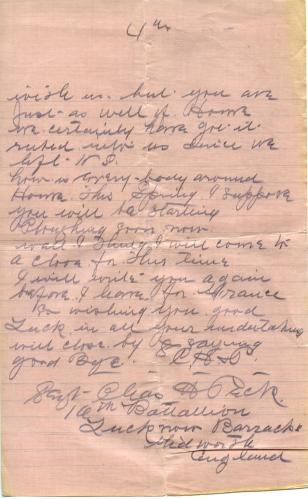 4th
wish us. but you are
just as well of Home
we certainly have got it
us since we
left N S.
how is every-body around
Home this Spring I suppose
you will be starting
Ploughing soon now
well I think I will come to
a close for this time
I will write you again
before I leave for France
So wishing you good
Luck in all your undertaking
will close by saying
good Bye.
Chas H Peck.
Battallion
Lucknow Barracks
Tidworth
England